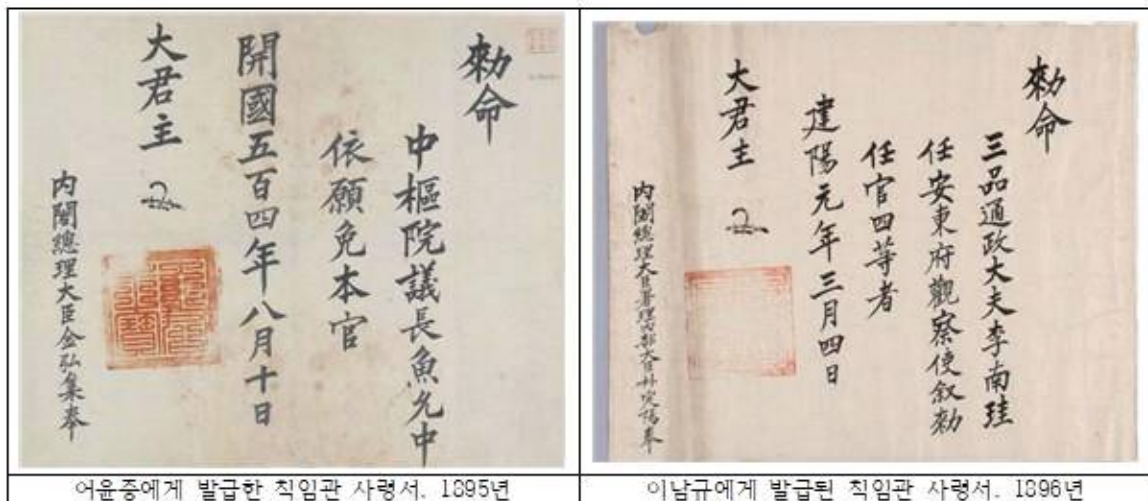 勑命
中樞院議長魚允中
依願免本官
開國五百四年八月十日
大君主
內閣總理大臣金弘集奉
어윤중에게 발급한 칙임관 사령서. 1895년
勑命
三品通政大夫李南珪
任安東府觀察使叙勑
任官四等者
建陽元年三月四日
大君主
內閣總理大臣署理內部大臣朴定陽奉
이남규에게 발급된 칙임관 사령서. 1896년